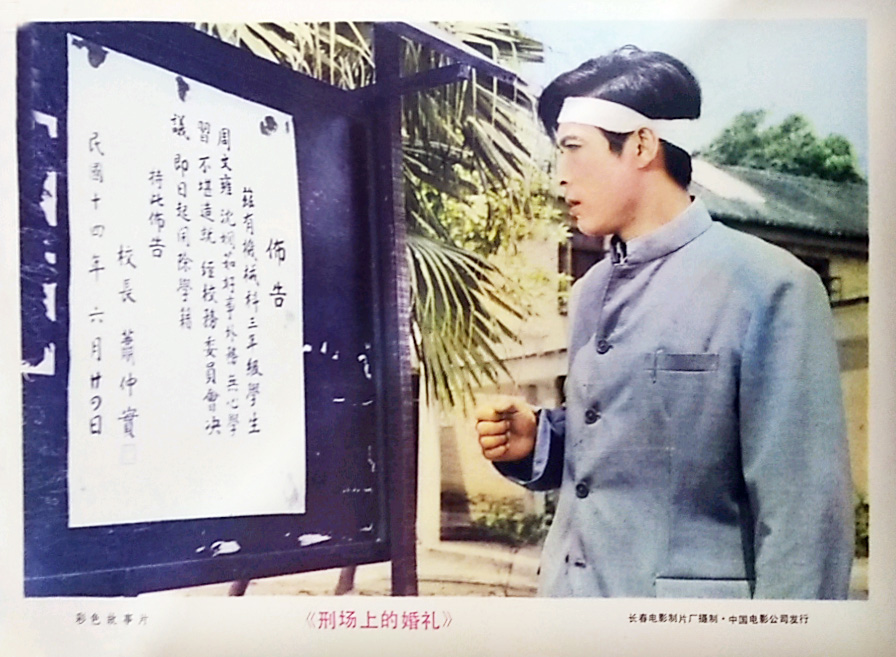 佈告
茲有機械科三年級學生
周文雍 沈 好事外務無心學
習不堪造就 經校務委員會決
議即日起開除學籍
特此佈告
校長 蕭仲實
民國十四年六月廿四日
彩色故事片
《刑场上的婚礼》
长春电影制片厂摄制・中国电影公司发行